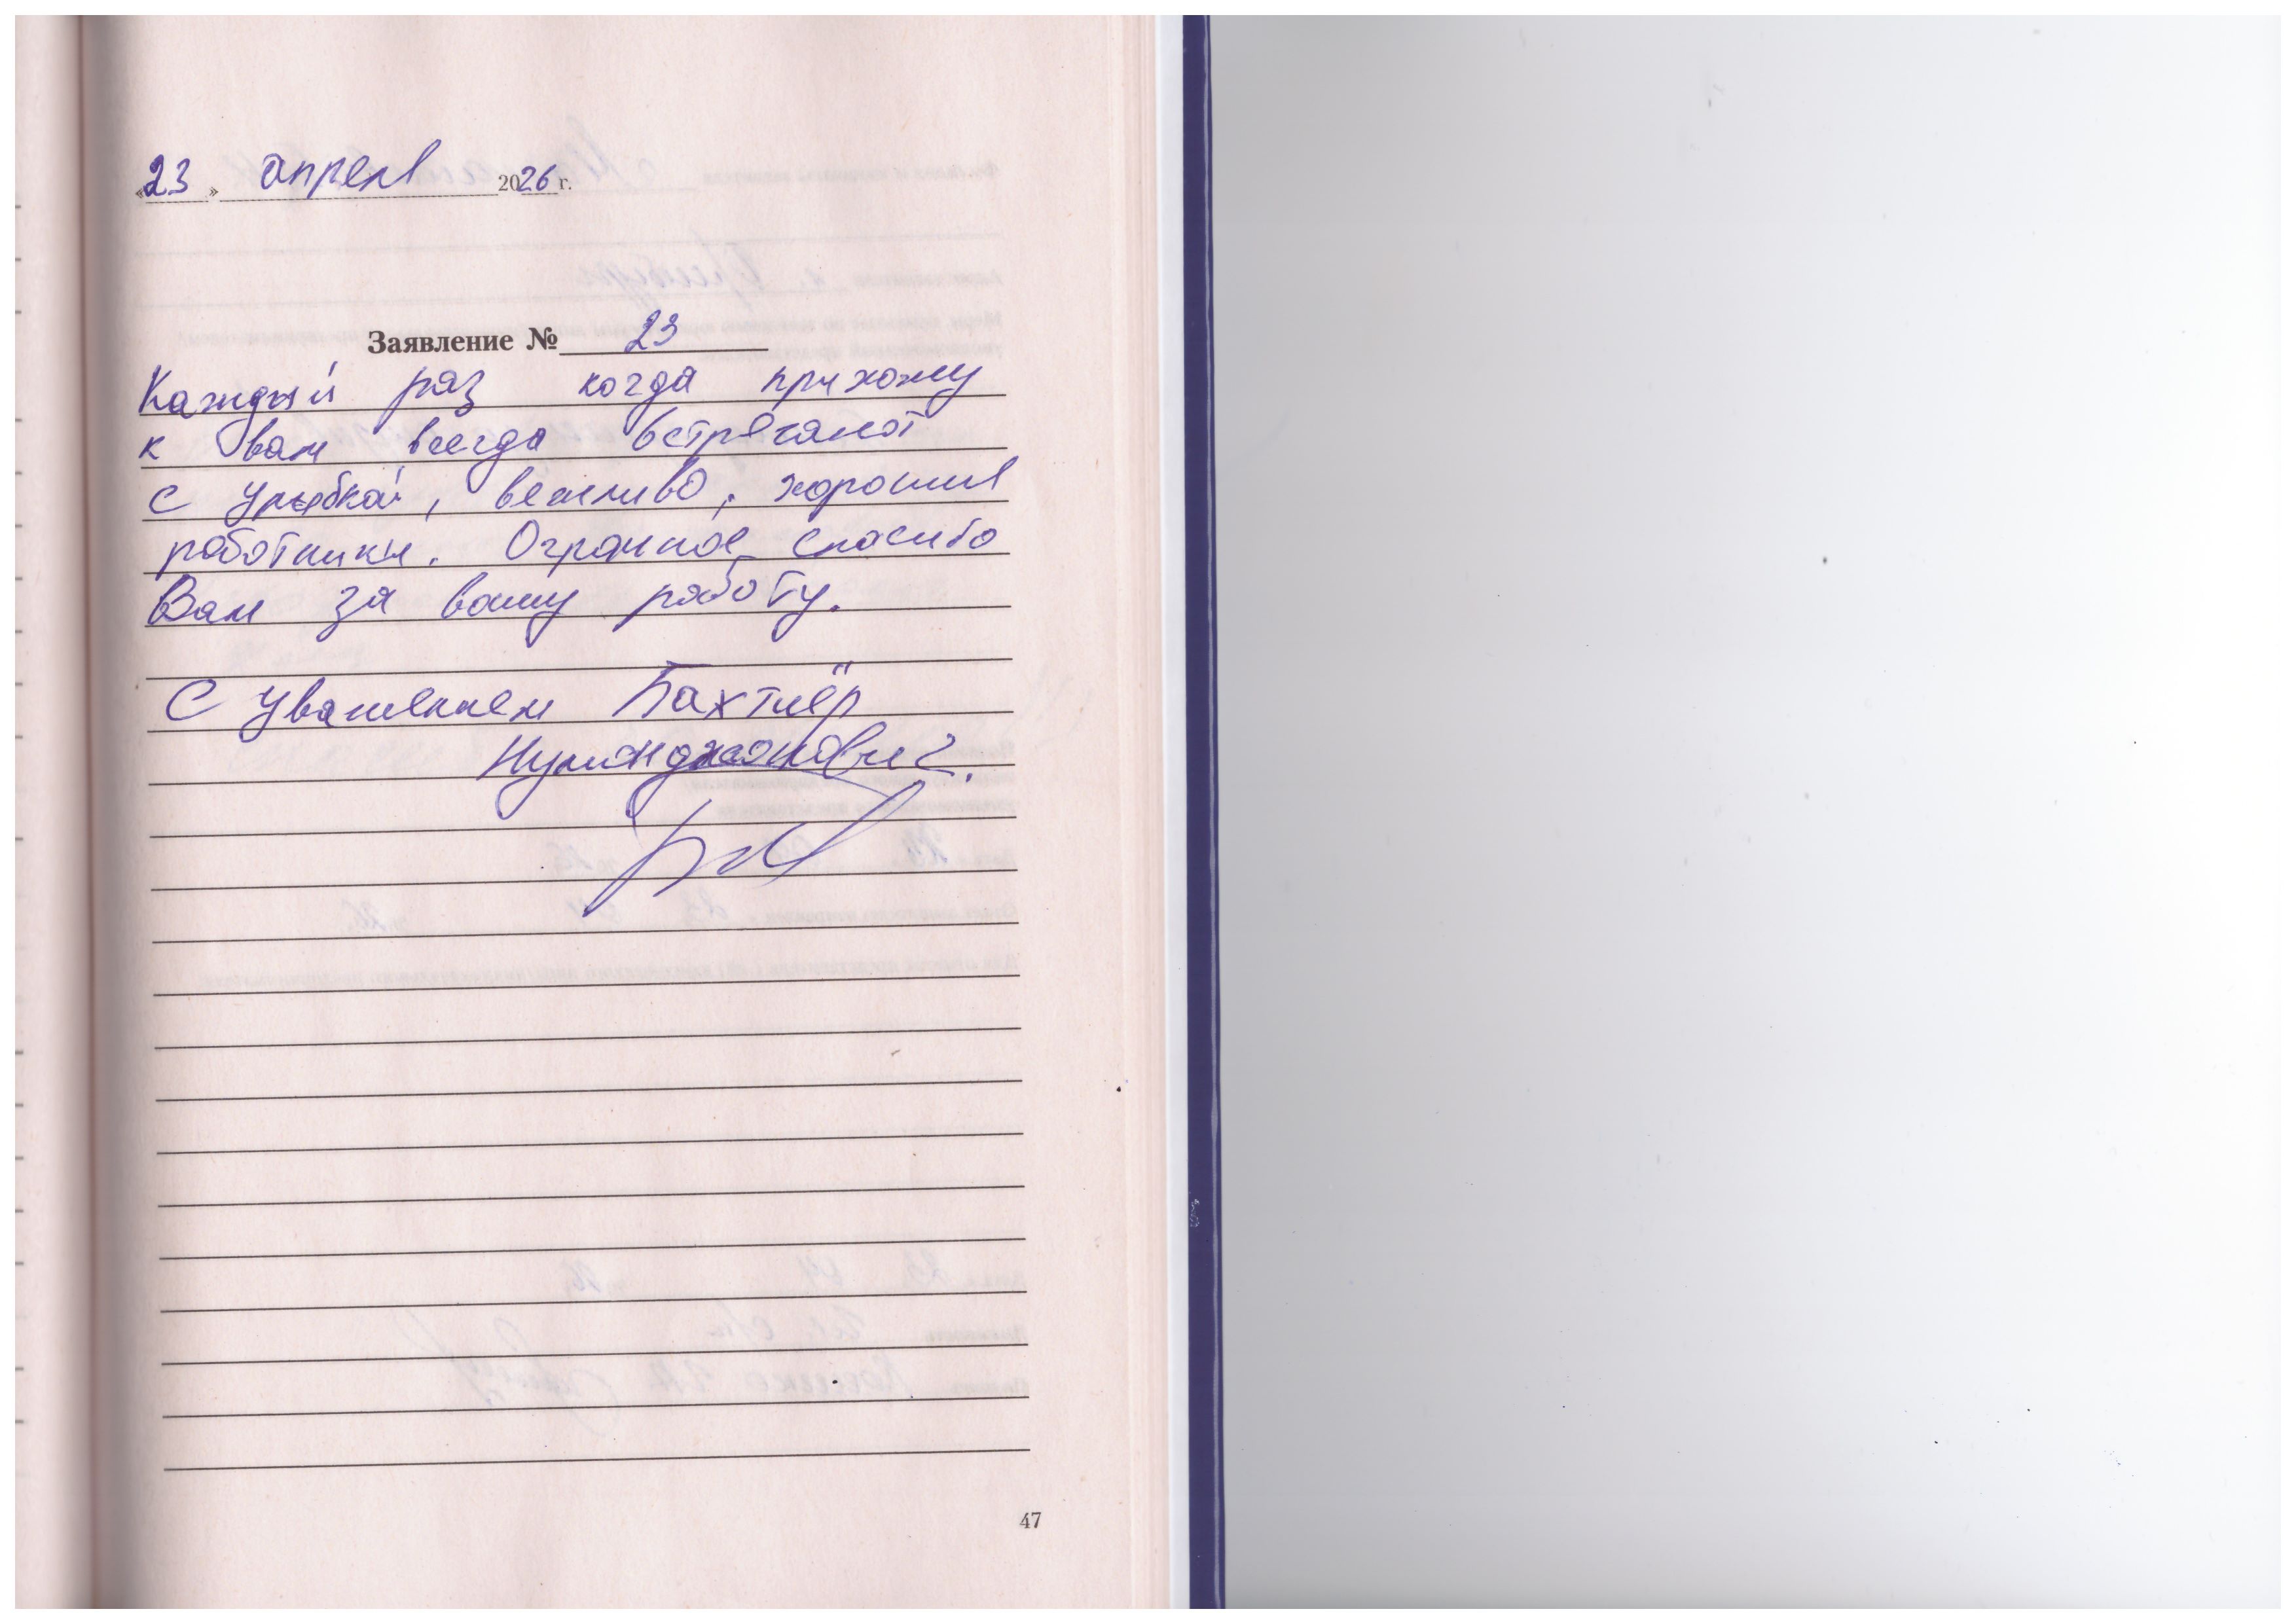 «23» апреля 2026 г.
Заявление № 23
Каждый раз когда прихожу
к вам всегда встречают
с улыбкой, вежливо, хорошие
работники. Огромное спасибо
Вам за вашу работу.
С уважением Бахтиёр
Нумонджонович.
47